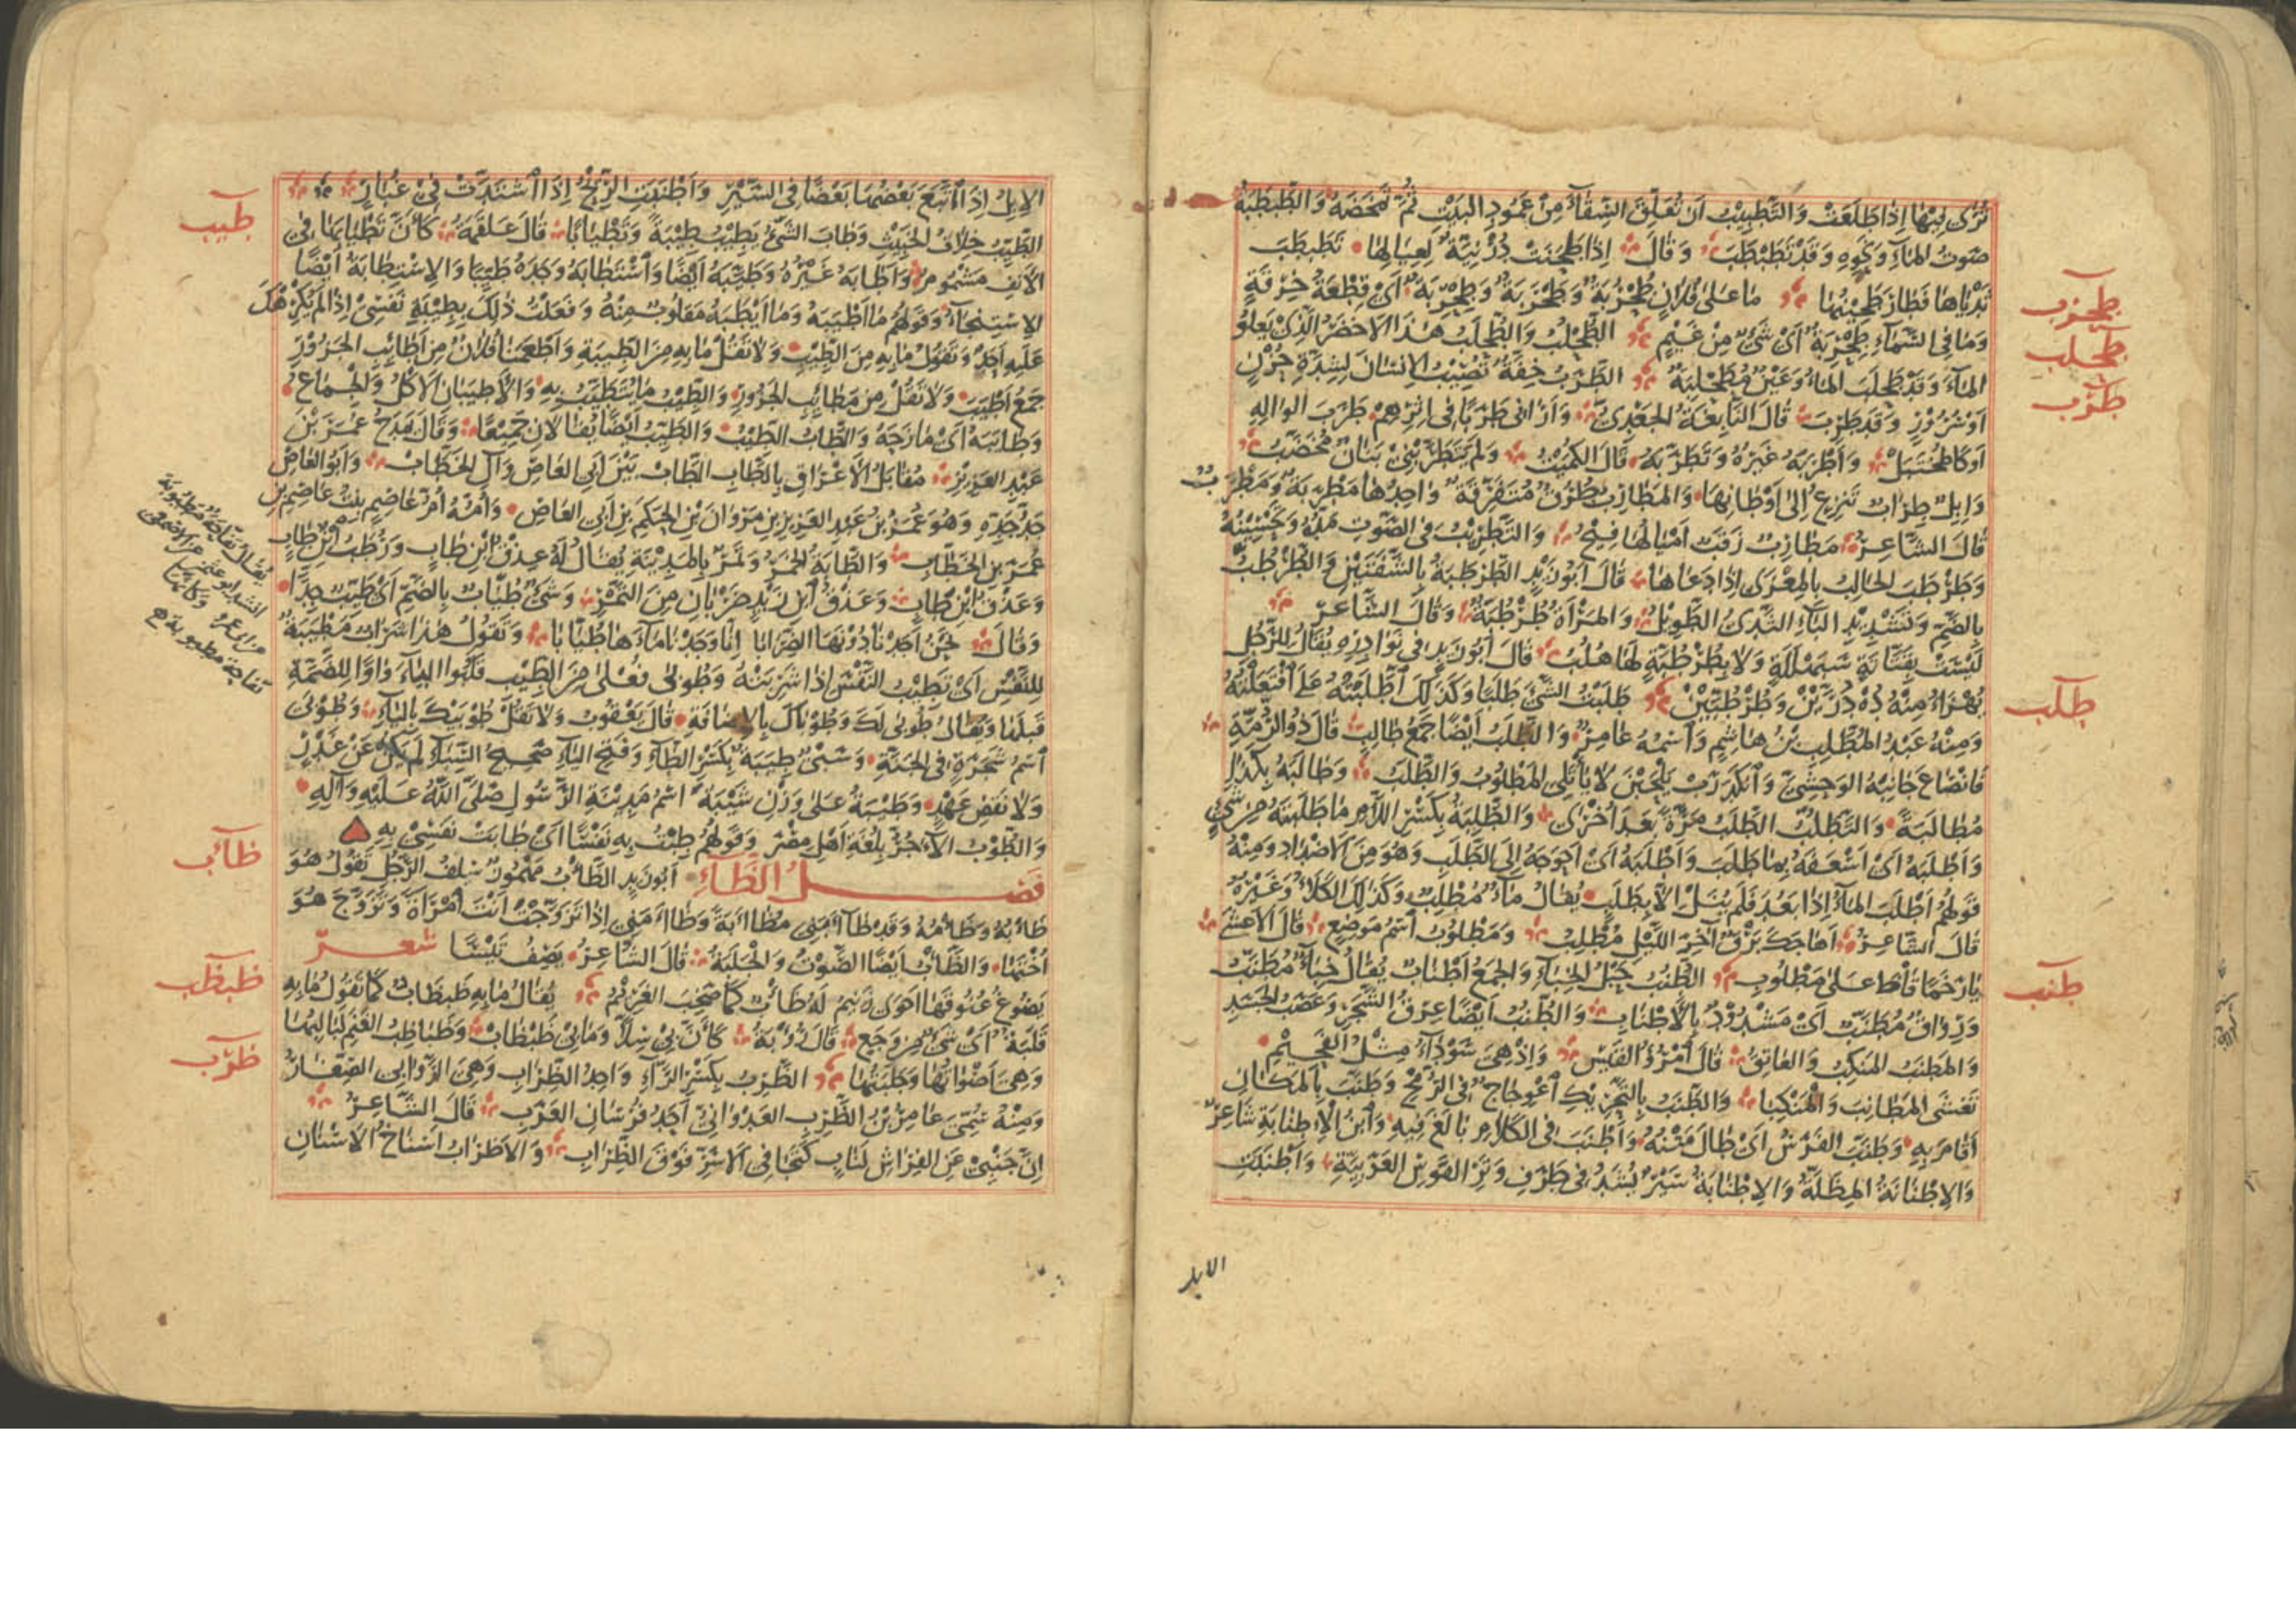 تُرَى بِهَا إِذَا طَلَعَتْ وَالتَّطْبِيْبُ أَنْ تُعَلِّقَ السِّقَاءَ مِنْ عَمُودِ البَيْتِ ثُمَّ تَمْخَضَهُ وَالطَّبْطَبَةُ
صَوْتُ المَاءِ وَنَحْوِهِ وَقَدْ تَطَبْطَبَ وَقَالَ إِذَا طَحَنَتْ دُرْنِيَّةٌ لِعِيَالِهَا تَطَبْطَبَ
ثَدْيَاهَا فَطَارَ طَحِيْنُهَا
طحرب
مَا عَلَى فُلَانٍ طُحْرُبَةٌ وَطَحْرَبَةٌ وَطِحْرِبَةٌ أَيْ قِطْعَةُ خِرْقَةٍ
وَمَا فِي السَّمَاءِ طِحْرِبَةٌ أَيْ شَيْءٌ مِنْ غَيْمٍ
طحلب
الطُّحْلُبُ وَالطُّحْلَبُ هَذَا الأَخْضَرُ الَّذِي يَعْلُو
المَاءَ وَقَدْ طَحْلَبَ المَاءُ وَعَيْنٌ مُطَحْلِبَةٌ
طرب
الطَّرَبُ خِفَّةٌ تُصِيْبُ الإِنْسَانَ لِشِدَّةِ حُزْنٍ
أَوْ سُرُوْرٍ وَقَدْ طَرِبَ قَالَ النَّابِغَةُ الجَعْدِيُّ وَأَرَانِي طَرِبًا فِي إِثْرِهِمْ طَرَبَ الوَالِهِ
أَوْ كَالمُخْتَبَلْ وَأَطْرَبَهُ غَيْرُهُ وَتَطَرَّبَهُ قَالَ الكُمَيْتُ وَلَمْ يَتَطَرَّبْنِي بَنَانٌ مُخَضَّبُ
وَإِبِلٌ طِرَابٌ تَنْزِعُ إِلَى أَوْطَانِهَا وَالمَطَارِبُ طُرُقٌ مُتَفَرِّقَةٌ وَاحِدُهَا مَطْرَبَةٌ وَمَطْرَبٌ
قَالَ الشَّاعِرُ مَطَارِبٌ زَقَبٌ أَمْيَالُهَا فِيْحُ وَالتَّطْرِيْبُ فِي الصَّوْتِ مَدُّهُ وَتَحْسِيْنُهُ
وَطَرْطَبَ الحَالِبُ بِالمِعْزَى إِذَا دَعَاهَا قَالَ أَبُو زَيْدٍ الطَّرْطَبَةُ بِالشَّفَتَيْنِ وَالطُّرْطُبُّ
بِالضَّمِّ وَتَشْدِيْدِ البَاءِ الثَّدْيُ الطَّوِيْلُ وَالمَرْأَةُ طُرْطُبَّةٌ وَقَالَ الشَّاعِرُ
لَيْسَتْ بِقَتَّاتَةٍ سَبَهْلَلَةٍ وَلَا بِطُرْطُبَّةٍ لَهَا هُلْبُ قَالَ أَبُو زَيْدٍ فِي نَوَادِرِهِ يُقَالُ لِلرَّجُلِ
يُهْزَأُ مِنْهُ دُهْ دُرَّيْنِ وَطُرْطُبَّيْنِ
طلب
طَلَبْتُ الشَّيْءَ طَلَبًا وَكَذَلِكَ اطَّلَبْتُهُ عَلَى افْتَعَلْتُهُ
وَمِنْهُ عَبْدُ المُطَّلِبِ بْنُ هَاشِمٍ وَاسْمُهُ عَامِرٌ وَالطَّلَبُ أَيْضًا جَمْعُ طَالِبٍ قَالَ ذُو الرُّمَّةِ
فَانْصَاعَ جَانِبَهُ الوَحْشِيَّ وَانْكَدَرَتْ يَلْحَبْنَ لَا يَأْتَلِي المَطْلُوْبُ وَالطَّلَبُ وَطَالَبَهُ بِكَذَا
مُطَالَبَةً وَالتَّطَلُّبُ الطَّلَبُ مَرَّةً بَعْدَ أُخْرَى وَالطَّلِبَةُ بِكَسْرِ اللَّامِ مَا طَلَبْتَهُ مِنْ شَيْءٍ
وَأَطْلَبَهُ أَيْ أَسْعَفَهُ بِمَا طَلَبَ وَأَطْلَبَهُ أَيْ أَحْوَجَهُ إِلَى الطَّلَبِ وَهُوَ مِنَ الأَضْدَادِ وَمِنْهُ
قَوْلُهُمْ أَطْلَبَ المَاءُ إِذَا بَعُدَ فَلَمْ يُنَلْ إِلَّا بِطَلَبٍ يُقَالُ مَاءٌ مُطْلِبٌ وَكَذَلِكَ الكَلَأُ وَغَيْرُهُ
قَالَ الشَّاعِرُ أَهَاجَكَ بَرْقٌ آخِرَ اللَّيْلِ مُطْلِبُ وَمَطْلُوبٌ اسْمُ مَوْضِعٍ قَالَ الأَعْشَى
يَا رَخَمًا قَاظَ عَلَى مَطْلُوبِ
طنب
الطُّنُبُ حَبْلُ الخِبَاءِ وَالجَمْعُ أَطْنَابٌ يُقَالُ خِبَاءٌ مُطَنَّبٌ
وَرِوَاقٌ مُطَنَّبٌ أَيْ مَشْدُوْدٌ بِالأَطْنَابِ وَالطُّنُبُ أَيْضًا عِرْقُ الشَّجَرِ وَعَصَبُ الجَسَدِ
وَالمَطْنَبُ المَنْكِبُ وَالعَاتِقُ قَالَ امْرُؤُ القَيْسِ وَإِذْ هِيَ سَوْدَاءُ مِثْلُ الفَحِيْمِ
تُغَشِّي المَطَانِبَ وَالمَنْكِبَا وَالطَّنَبُ بِالتَّحْرِيْكِ اعْوِجَاجٌ فِي الرُّمْحِ وَطَنَّبَ بِالمَكَانِ
أَقَامَ بِهِ وَطَنِبَ الفَرَسُ أَيْ طَالَ مَتْنُهُ وَأَطْنَبَ فِي الكَلَامِ بَالَغَ فِيْهِ وَابْنُ الإِطْنَابَةِ شَاعِرٌ
وَالإِطْنَابَةُ المِظَلَّةُ وَالإِطْنَابَةُ سَيْرٌ يُشَدُّ فِي طَرَفِ وَتَرِ القَوْسِ العَرَبِيَّةِ وَأَطْنَبَتِ
الابل
الإِبِلُ إِذَا اتَّبَعَ بَعْضُهَا بَعْضًا فِي السَّيْرِ وَأَطْنَبَتِ الرِّيْحُ إِذَا اشْتَدَّتْ فِي غُبَارٍ
طيب
الطَّيِّبُ خِلَافُ الخَبِيْثِ وَطَابَ الشَّيْءُ يَطِيْبُ طِيْبَةً وَتَطْيَابًا قَالَ عَلْقَمَةُ كَأَنَّ تَطْيَابَهَا فِي
الأَنْفِ مَشْمُومُ وَأَطَابَهُ غَيْرُهُ وَطَيَّبَهُ أَيْضًا وَاسْتَطَابَهُ وَجَدَهُ طَيِّبًا وَالاِسْتِطَابَةُ أَيْضًا
الاِسْتِنْجَاءُ وَقَوْلُهُمْ مَا أَطْيَبَهُ وَمَا أَيْطَبَهُ مَقْلُوبٌ مِنْهُ وَفَعَلْتُ ذَلِكَ بِطِيْبَةِ نَفْسِي إِذَا لَمْ يُكْرِهْكَ
عَلَيْهِ أَحَدٌ وَتَقُولُ مَا بِهِ مِنَ الطِّيْبِ وَلَا تَقُلْ مَا بِهِ مِنَ الطِّيْبَةِ وَأَطْعَمَنَا فُلَانٌ مِنْ أَطَايِبِ الجَزُوْرِ
جَمْعُ أَطْيَبَ وَلَا تَقُلْ مِنْ مَطَايِبِ الجَزُورِ وَالطِّيْبُ مَا يُتَطَيَّبُ بِهِ وَالأَطْيَبَانِ الأَكْلُ وَالجِمَاعُ
وَطَايَبَهُ أَيْ مَازَحَهُ وَالطَّابُ الطَّيِّبُ وَالطِّيْبُ أَيْضًا يُقَالَانِ جَمِيْعًا وَقَالَ يَمْدَحُ عُمَرَ بْنَ
عَبْدِ العَزِيْزِ مُقَابَلُ الأَعْرَاقِ بِالطَّابِ الطَّابْ بَيْنَ أَبِي العَاصِ وَآلِ الخَطَّابْ وَأَبُو العَاصِ
جَدُّ جَدِّهِ وَهُوَ عُمَرُ بْنُ عَبْدِ العَزِيْزِ بْنِ مَرْوَانَ بْنِ الحَكَمِ بْنِ أَبِي العَاصِ وَأُمُّهُ أُمُّ عَاصِمٍ بِنْتُ عَاصِمِ بْنِ
عُمَرَ بْنِ الخَطَّابِ وَالطَّابَةُ الخَمْرُ وَتَمْرٌ بِالمَدِيْنَةِ يُقَالُ لَهُ عِذْقُ ابْنِ طَابٍ وَرُطَبُ ابْنِ طَابٍ
وَعَذْقُ ابْنِ طَابٍ وَعَذْقُ ابْنِ زَيْدٍ ضَرْبَانِ مِنَ التَّمْرِ وَشَيْءٌ طُيَّابٌ بِالضَّمِّ أَيْ طَيِّبٌ جِدًّا
وَقَالَ نَحْنُ أَجَدْنَا دُوْنَهَا الضِّرَابَا إِنَّا وَجَدْنَا مَاءَهَا طُيَّابَا وَتَقُولُ هَذَا شَرَابٌ مَطْيَبَةٌ
لِلنَّفْسِ أَيْ تَطِيْبُ النَّفْسُ إِذَا شَرِبَتْهُ وَطُوبَى فُعْلَى مِنَ الطِّيْبِ قَلَبُوا اليَاءَ وَاوًا لِلضَّمَّةِ
قَبْلَهَا وَيُقَالُ طُوبَى لَكَ وَطُوبَاكَ بِالإِضَافَةِ قَالَ يَعْقُوبُ وَلَا تَقُلْ طُوبِيْكَ بِاليَاءِ وَطُوْبَى
اسْمُ شَجَرَةٍ فِي الجَنَّةِ وَسَبْيٌ طِيَبَةٌ بِكَسْرِ الطَّاءِ وَفَتْحِ اليَاءِ صَحِيْحُ السِّبَاءِ لَمْ يَكُنْ عَنْ غَدْرٍ
وَلَا نَقْضِ عَهْدٍ وَطَيْبَةُ عَلَى وَزْنِ شَيْبَةَ اسْمُ مَدِيْنَةِ الرَّسُولِ صَلَّى اللهُ عَلَيْهِ وَآلِهِ
وَالطُّوْبُ الآجُرُّ بِلُغَةِ أَهْلِ مِصْرَ وَقَوْلُهُمْ طِبْتُ بِهِ نَفْسًا أَيْ طَابَتْ نَفْسِيْ بِهِ
فَصْلُ الظَّاءِ
ظأب
أَبُو زَيْدٍ الظَّأْبُ مَهْمُوزٌ سِلْفُ الرَّجُلِ تَقُولُ هُوَ
ظَأْبُهُ وَظَأْمُهُ وَقَدْ ظَاءَبَنِي مُظَاءَبَةً وَظَاءَمَنِي إِذَا تَزَوَّجْتَ أَنْتَ امْرَأَةً وَتَزَوَّجَ هُوَ
أُخْتَهَا وَالظَّأْبُ أَيْضًا الصَّوْتُ وَالجَلَبَةُ قَالَ الشَّاعِرُ يَصِفُ تَيْسًا شعر
يَصُوْعُ عُنُوقَهَا أَحْوَى زَنِيْمٌ لَهُ ظَأْبٌ كَمَا صَخِبَ الغَرِيْمُ
ظبظب
يُقَالُ مَا بِهِ ظَبْظَابٌ كَمَا تَقُولُ مَا بِهِ
قَلَبَةٌ أَيْ شَيْءٌ مِنْ وَجَعٍ قَالَ رُؤْبَةُ كَأَنَّ بِي سِلًّا وَمَا بِيْ ظَبْظَابْ وَظَبَاظِبُ الغَنَمِ لَبَالِبُهَا
وَهِيَ أَصْوَاتُهَا وَجَلَبَتُهَا
ظرب
الظَّرِبُ بِكَسْرِ الرَّاءِ وَاحِدُ الظِّرَابِ وَهِيَ الرَّوَابِي الصِّغَارُ
وَمِنْهُ سُمِّيَ عَامِرُ بْنُ الظَّرِبِ العَدْوَانِيُّ أَحَدُ فُرْسَانِ العَرَبِ قَالَ الشَّاعِرُ
إِنَّ جَنْبِيْ عَنِ الفِرَاشِ لَنَابٍ كَتَجَافِي الأَسَرِّ فَوْقَ الظِّرَابِ وَالأَظْرَابُ أَسْنَاخُ الأَسْنَانِ